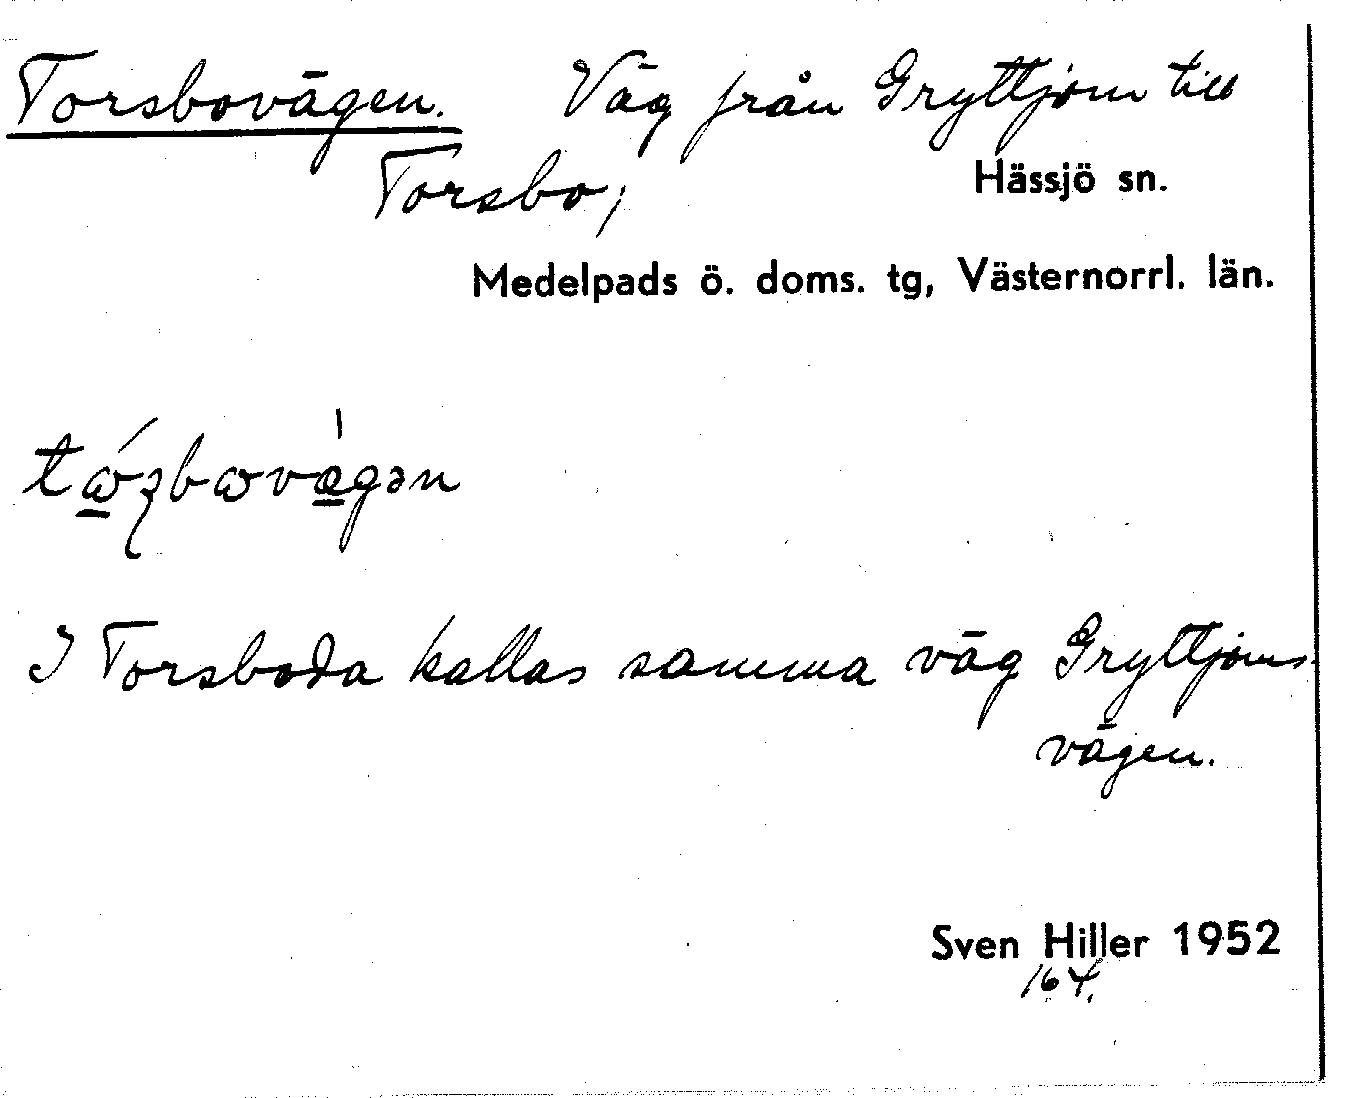 Torsbovägen. Väg från Gryttjom till
Torsbo,
Hässjö sn.
Medelpads ö. doms. tg, Västernorrl. län.
I Torsboda kallas samma väg Gryttjoms-
vägen.
Sven Hiller 1952
164.